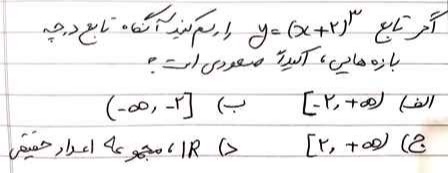 اگر تابع y=(x+۲)^۳ را رسم کنید آنگاه تابع درچه
بازه هایی، اکیداً صعودی است؟
الف) [-۲, +∞)    ب) (-∞, -۲]
ج) [۲, +∞)    د) IR، مجموعه اعداد حقیقی